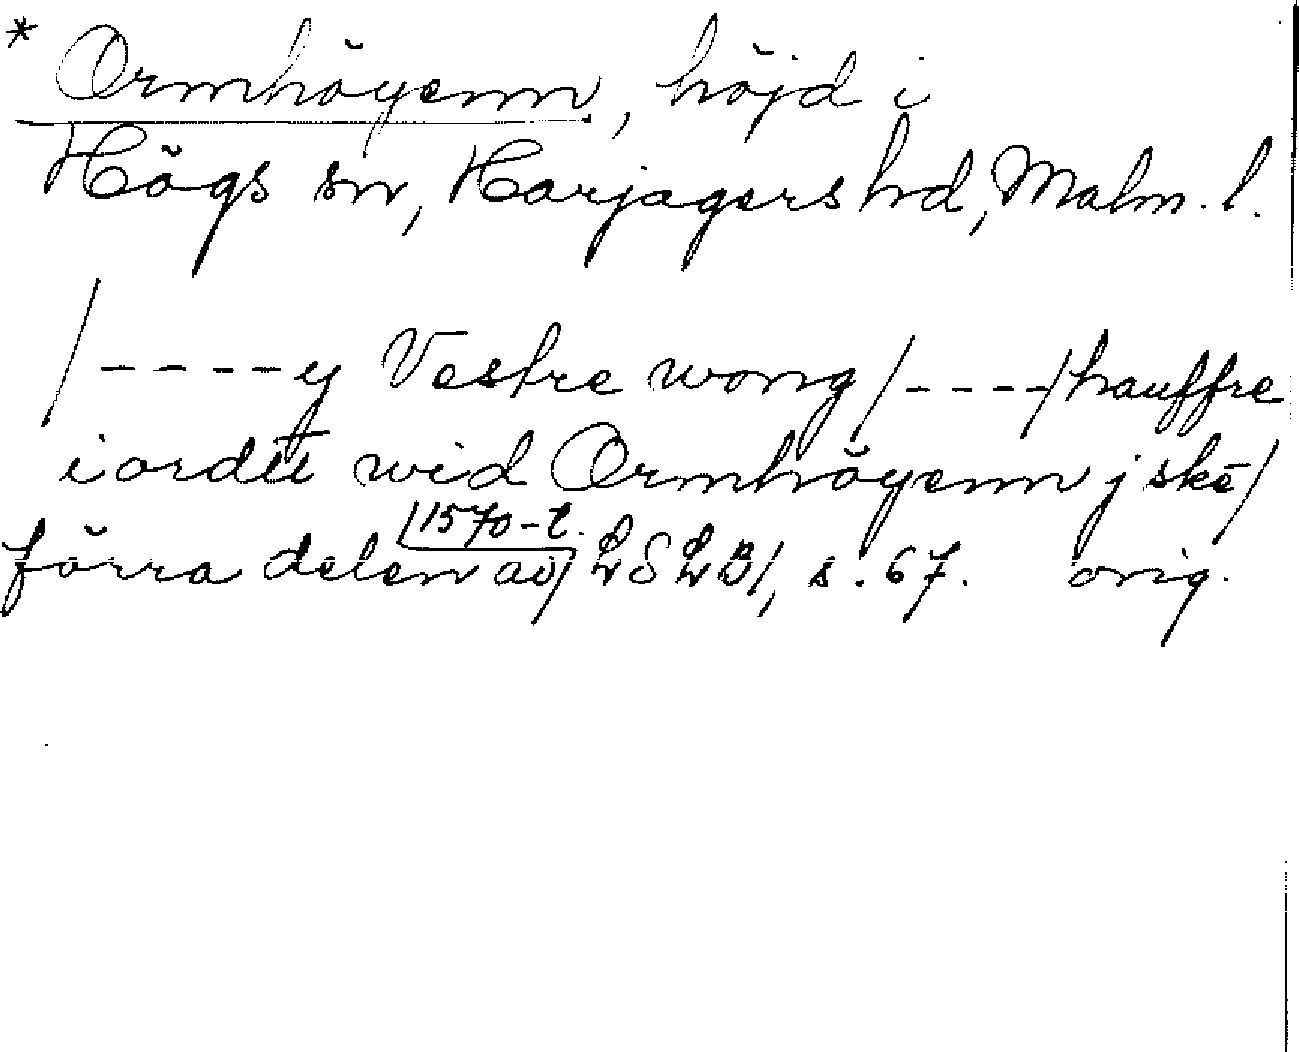 * Ormhöyenn, höjd i
Högs sn, Harjagers hd, Malm. l.
/----y Vestre wong/----/hauffre
iordtt wid Ormhöyenn j skē/
förra delen av 1570-t. / LSLB/, s. 67. orig.